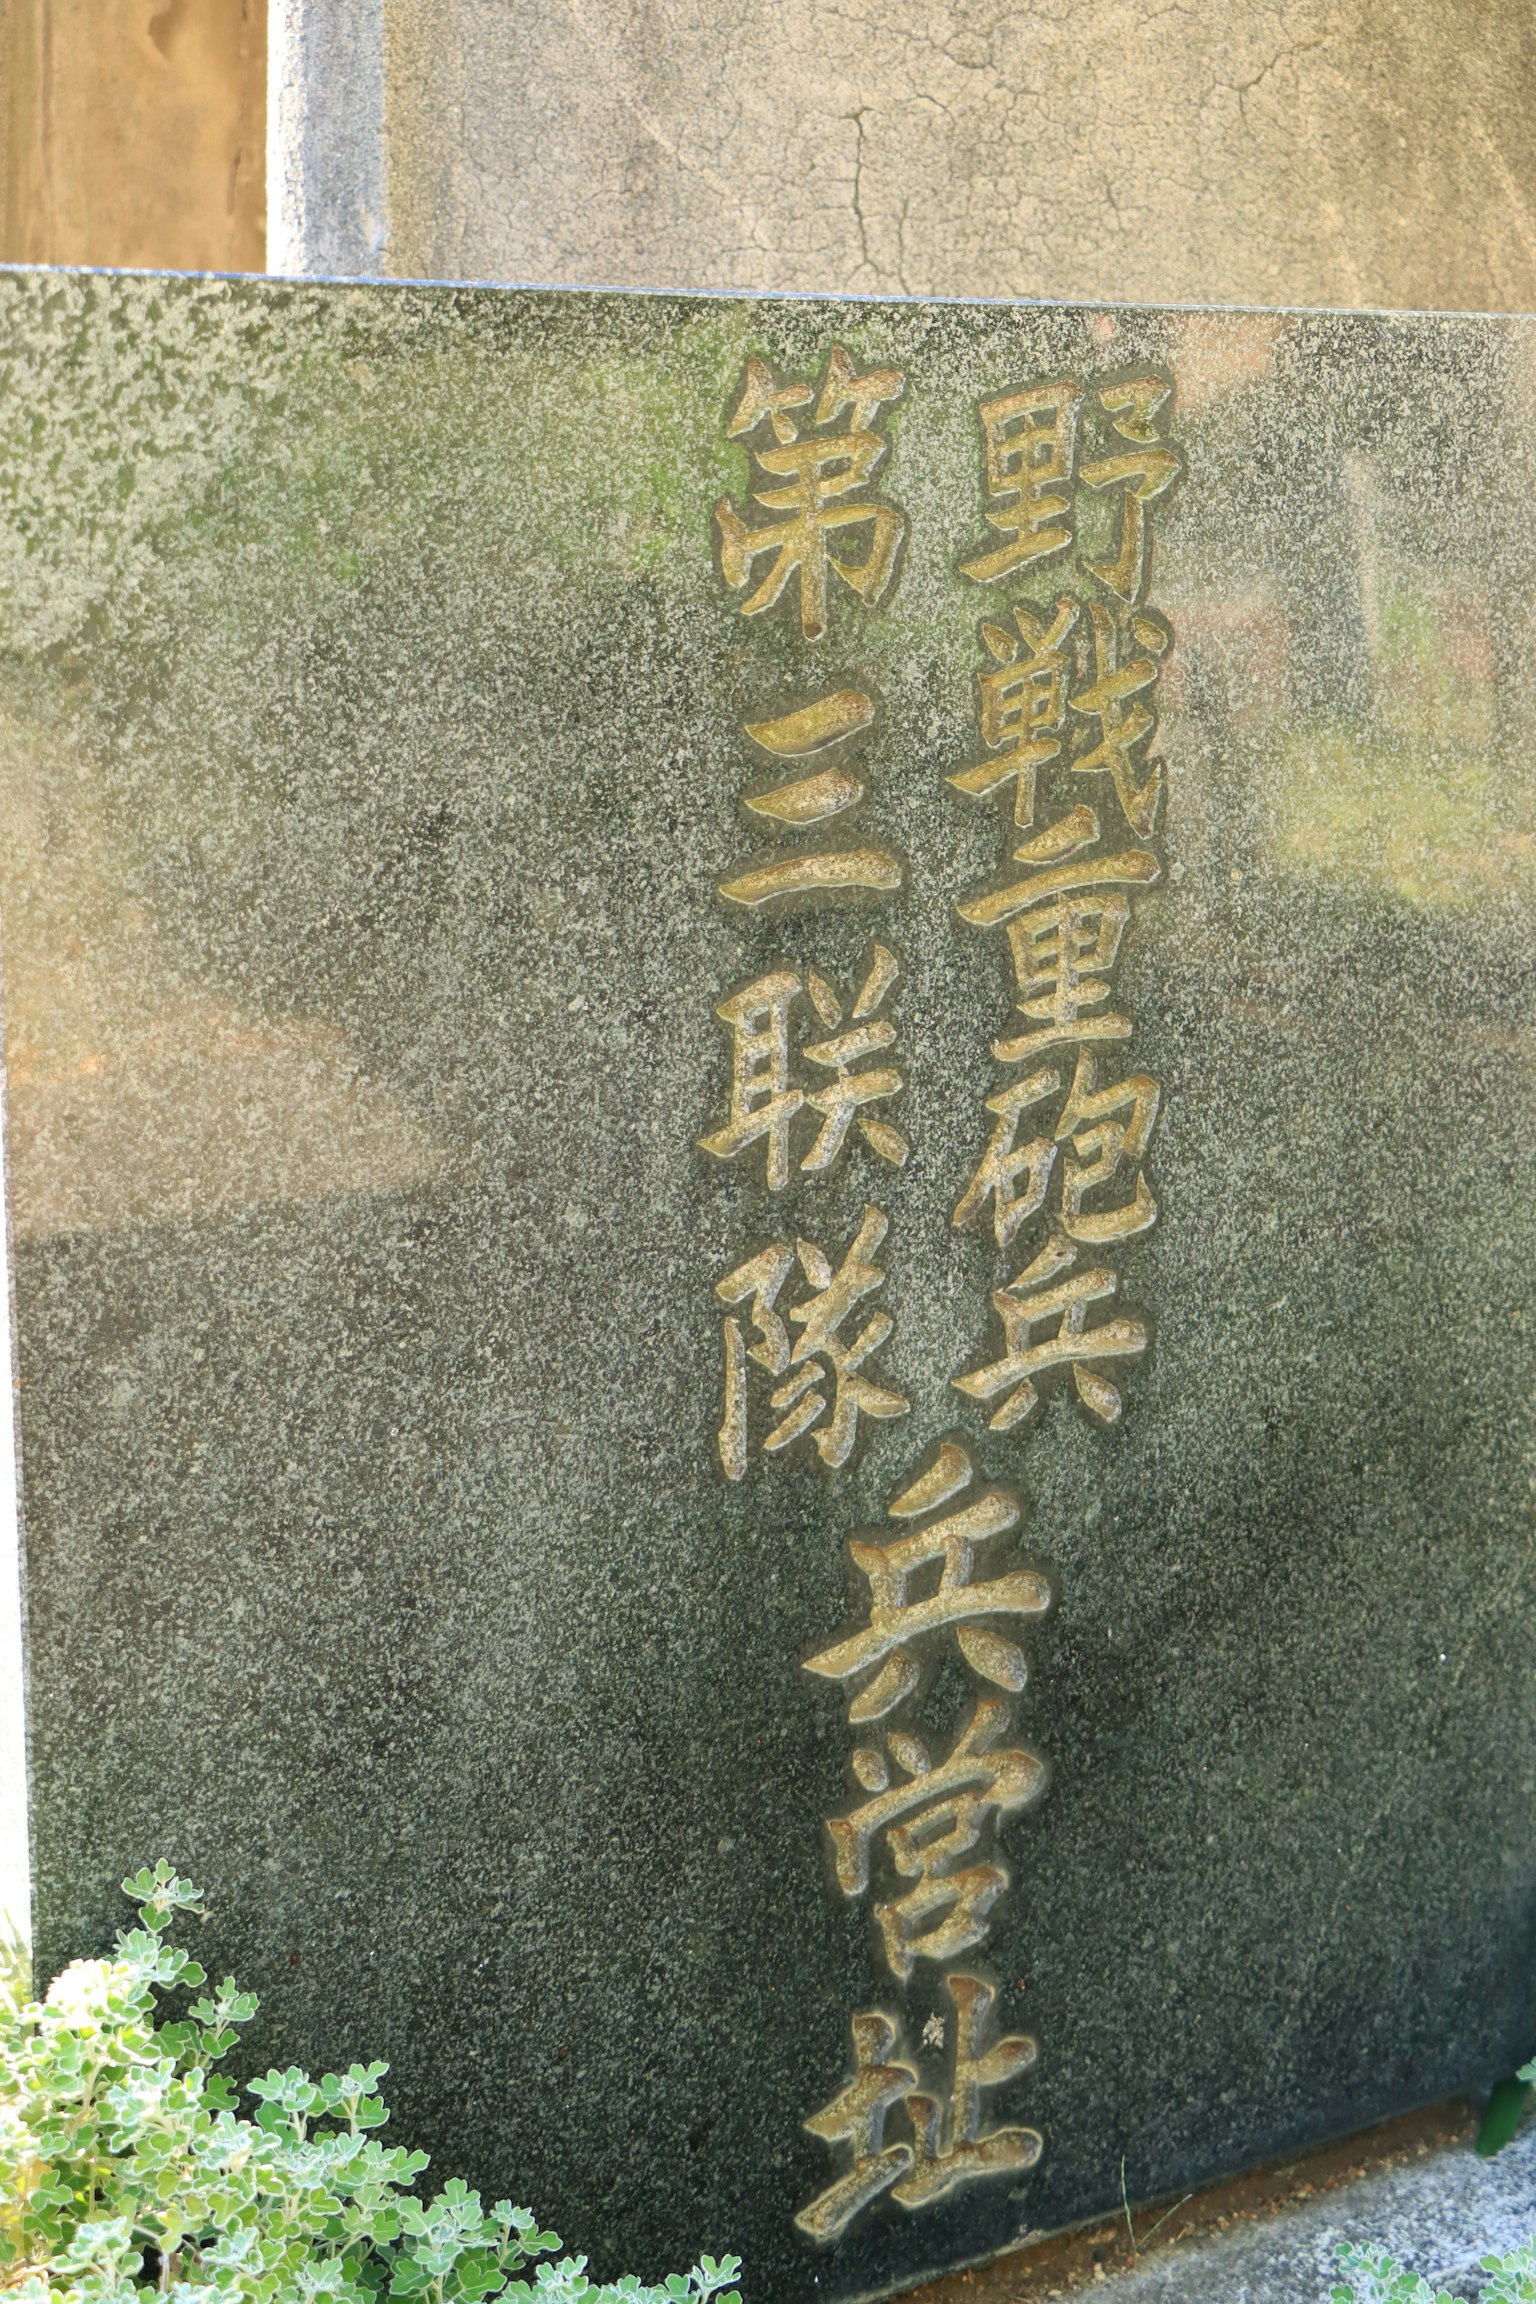 野戦重砲兵
第三聯隊
兵営址